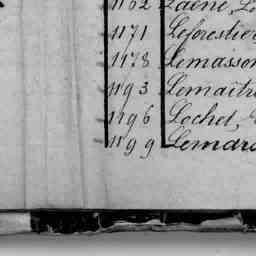 1162 Laené, L
1171 Leforestier
1178 Lemasson
1193 Lemaître
1196 Lochet,
1199 Lemar